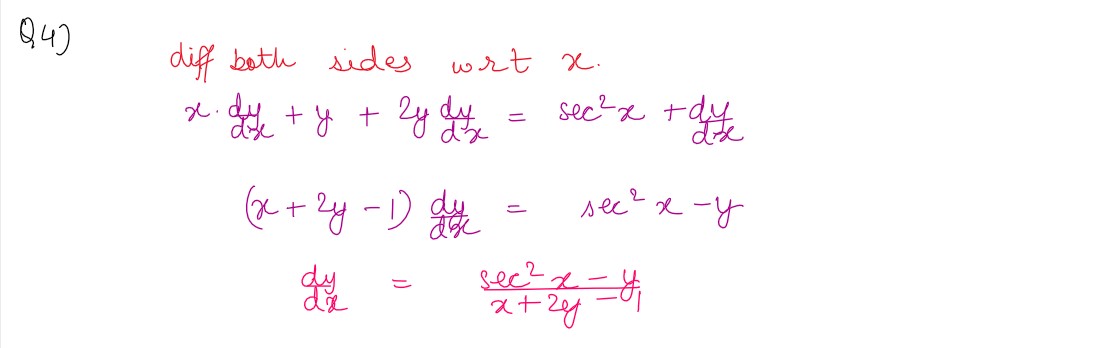 Q4)
diff both sides wrt x.
x. dy/dx + y + 2y dy/dx = sec²x + dy/dx
(x + 2y - 1) dy/dx = sec² x - y
dy/dx = sec² x - y / x + 2y - 1